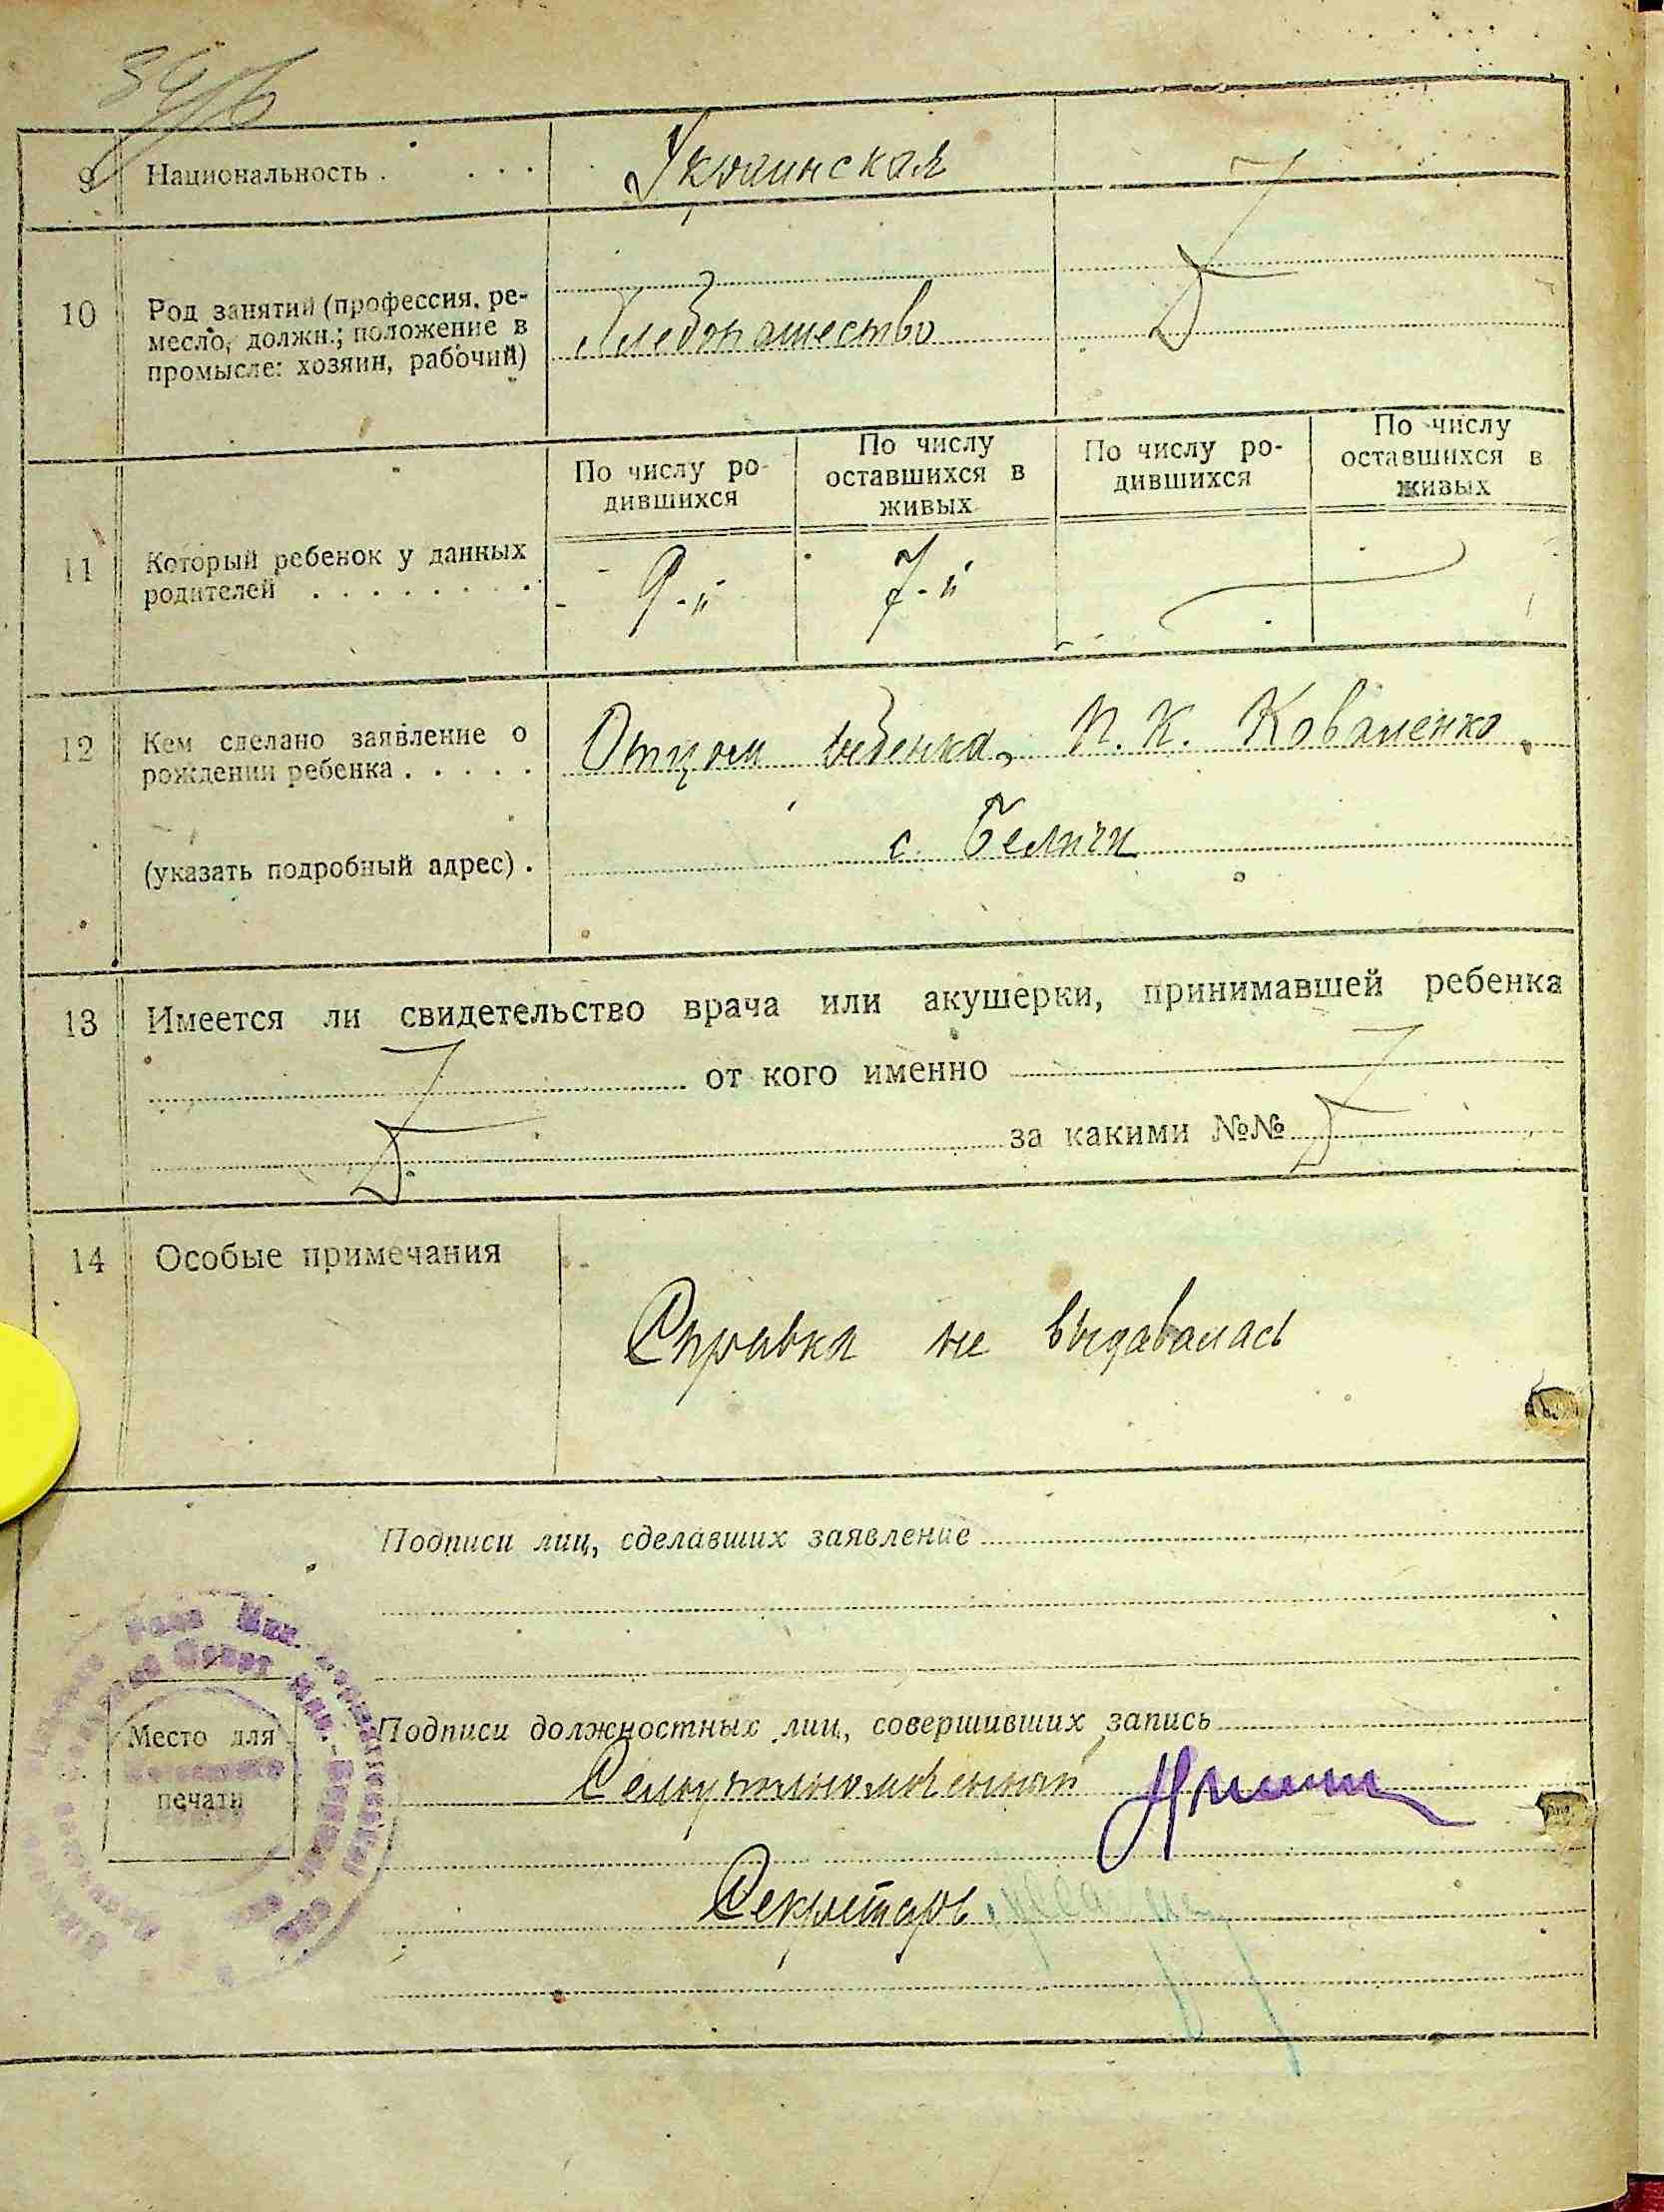 9 Национальность . . . . Украинская
10 Род занятий (профессия, ре-
месло, должн.; положение в
промысле: хозяин, рабочий)
Хлебопашество
По числу ро-
дившихся
По числу
оставшихся в
живых
По числу ро-
дившихся
По числу
оставшихся в
живых
11 Который ребенок у данных
родителей . . . . . . . .
9-й 7-й
12 Кем сделано заявление о
рождении ребенка . . . . .
Отцом ребенка, П. К. Коваленко
с. Беличи
(указать подробный адрес) .
13 Имеется ли свидетельство врача или акушерки, принимавшей ребенка
от кого именно
за какими №№
14 Особые примечания
Справка не выдавалась
Подписи лиц, сделавших заявление
Подписи должностных лиц, совершивших запись
Место для
печати
Сельуполномоченный
Секретарь